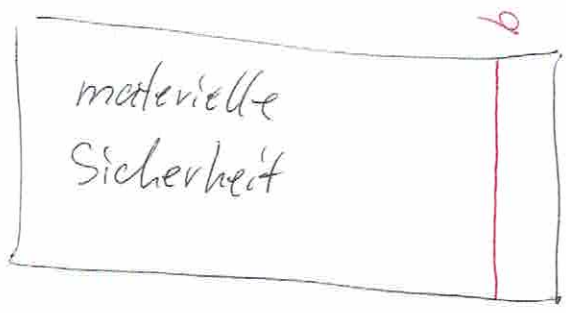 materielle
Sicherheit
b